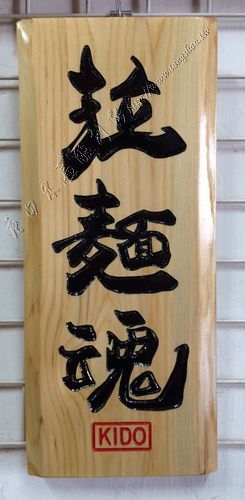 拉
麵
魂
KIDO